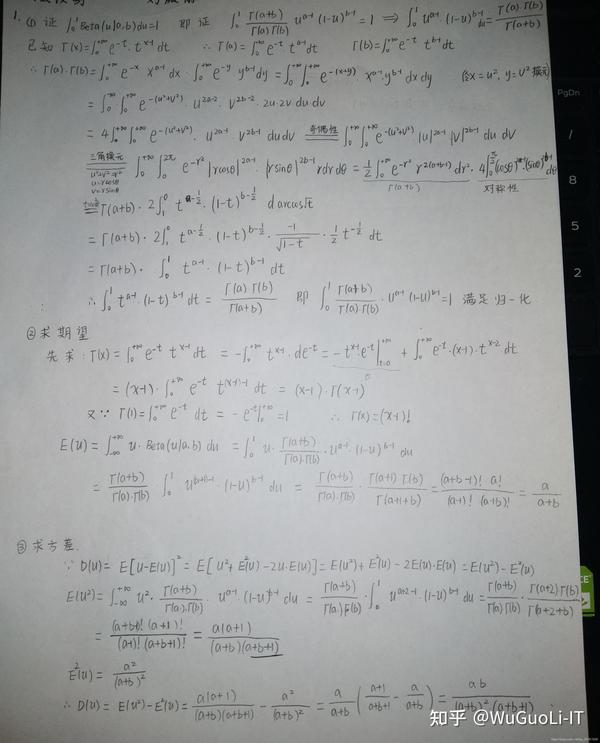 1. (1) 证 ∫₀¹ Beta(u|a,b)du=1 即证 ∫₀¹ Γ(a+b)/(Γ(a)Γ(b)) u^(a-1) (1-u)^(b-1) = 1 ⇒ ∫₀¹ u^(a-1) (1-u)^(b-1) du = Γ(a)Γ(b)/Γ(a+b)
已知 Γ(x)=∫₀^(+∞) e^(-t)·t^(x-1) dt ∴ Γ(a)=∫₀^(+∞) e^(-t) t^(a-1) dt Γ(b)=∫₀^(+∞) e^(-t) t^(b-1) dt
∴ Γ(a)·Γ(b)=∫₀^(+∞) e^(-x) x^(a-1) dx · ∫₀^(+∞) e^(-y) y^(b-1) dy = ∫₀^(+∞) ∫₀^(+∞) e^(-(x+y))·x^(a-1) y^(b-1) dx dy x=u², y=v² 换元
= ∫₀^(+∞) ∫₀^(+∞) e^(-(u²+v²))·u^(2a-2)·v^(2b-2)·2u·2v du dv
= 4∫₀^(+∞) ∫₀^(+∞) e^(-(u²+v²))·u^(2a-1) v^(2b-1) du dv 奇偶性 ∫∫ e^(-(u²+v²)) |u|^(2a-1) |v|^(2b-1) du dv
三角换元 u²+v²=r² u=rcosθ v=rsinθ = ∫₀^(+∞) ∫₀^(2π) e^(-r²) |rcosθ|^(2a-1)·|rsinθ|^(2b-1) r dr dθ = 1/2 ∫₀^(+∞) e^(-r²) r^(2(a+b-1)) dr² · 4∫₀^(π/2) (cosθ)^(2a-1) (sinθ)^(2b-1) dθ
Γ(a+b) 对称性
= Γ(a+b)·2∫₀¹ t^(a-1/2)·(1-t)^(b-1/2) d arccos√t
= Γ(a+b)·2∫₀¹ t^(a-1/2)·(1-t)^(b-1/2)·-1/√(1-t)·1/2 t^(-1/2) dt
= Γ(a+b)·∫₀¹ t^(a-1)·(1-t)^(b-1) dt
∴ ∫₀¹ t^(a-1)·(1-t)^(b-1) dt = Γ(a)Γ(b)/Γ(a+b) 即 ∫₀¹ Γ(a+b)/(Γ(a)Γ(b))·u^(a-1) (1-u)^(b-1) = 1 满足归一化
②求期望
先求: Γ(x)=∫₀^(+∞) e^(-t) t^(x-1) dt = -∫₀^(+∞) t^(x-1)·de^(-t) = -t^(x-1) e^(-t)|_(t=0)^(+∞) + ∫₀^(+∞) e^(-t)·(x-1)·t^(x-2) dt
0
= (x-1)·∫₀^(+∞) e^(-t) t^((x-1)-1) dt = (x-1)·Γ(x-1)
又∵ Γ(1)=∫₀^(+∞) e^(-t) dt = -e^(-t)|₀^(+∞) = 1 ∴ Γ(x)=(x-1)!
E(u)=∫_(-∞)^(+∞) u·Beta(u|a,b) du = ∫₀¹ u·Γ(a+b)/(Γ(a)·Γ(b))·u^(a-1)·(1-u)^(b-1) du
= Γ(a+b)/(Γ(a)·Γ(b))·∫₀¹ u^((a+1)-1)·(1-u)^(b-1) du = Γ(a+b)/(Γ(a)·Γ(b))·Γ(a+1)Γ(b)/Γ(a+1+b) = (a+b-1)!·a!/((a-1)!(a+b)!) = a/(a+b)
③求方差.
∵ D(u)=E[u-E(u)]² = E[u²+E²(u)-2u·E(u)] = E(u²)+E²(u)-2E(u)·E(u) = E(u²)-E²(u)
E(u²)=∫_(-∞)^(+∞) u²·Γ(a+b)/(Γ(a)·Γ(b))·u^(a-1)·(1-u)^(b-1) du = Γ(a+b)/(Γ(a)Γ(b))·∫₀¹ u^(a+2-1)·(1-u)^(b-1) du = Γ(a+b)/(Γ(a)Γ(b))·Γ(a+2)Γ(b)/Γ(a+2+b)
= (a+b-1)!(a+1)!/((a-1)!(a+b+1)!) = a(a+1)/((a+b)(a+b+1))
E²(u)=a²/(a+b)²
∴ D(u)=E(u²)-E²(u)=a(a+1)/((a+b)(a+b+1)) - a²/(a+b)² = a/(a+b) ((a+1)/(a+b+1) - a/(a+b)) = ab/((a+b)²(a+b+1))
PgDn
/
8
5
2
知乎 @WuGuoLi-IT